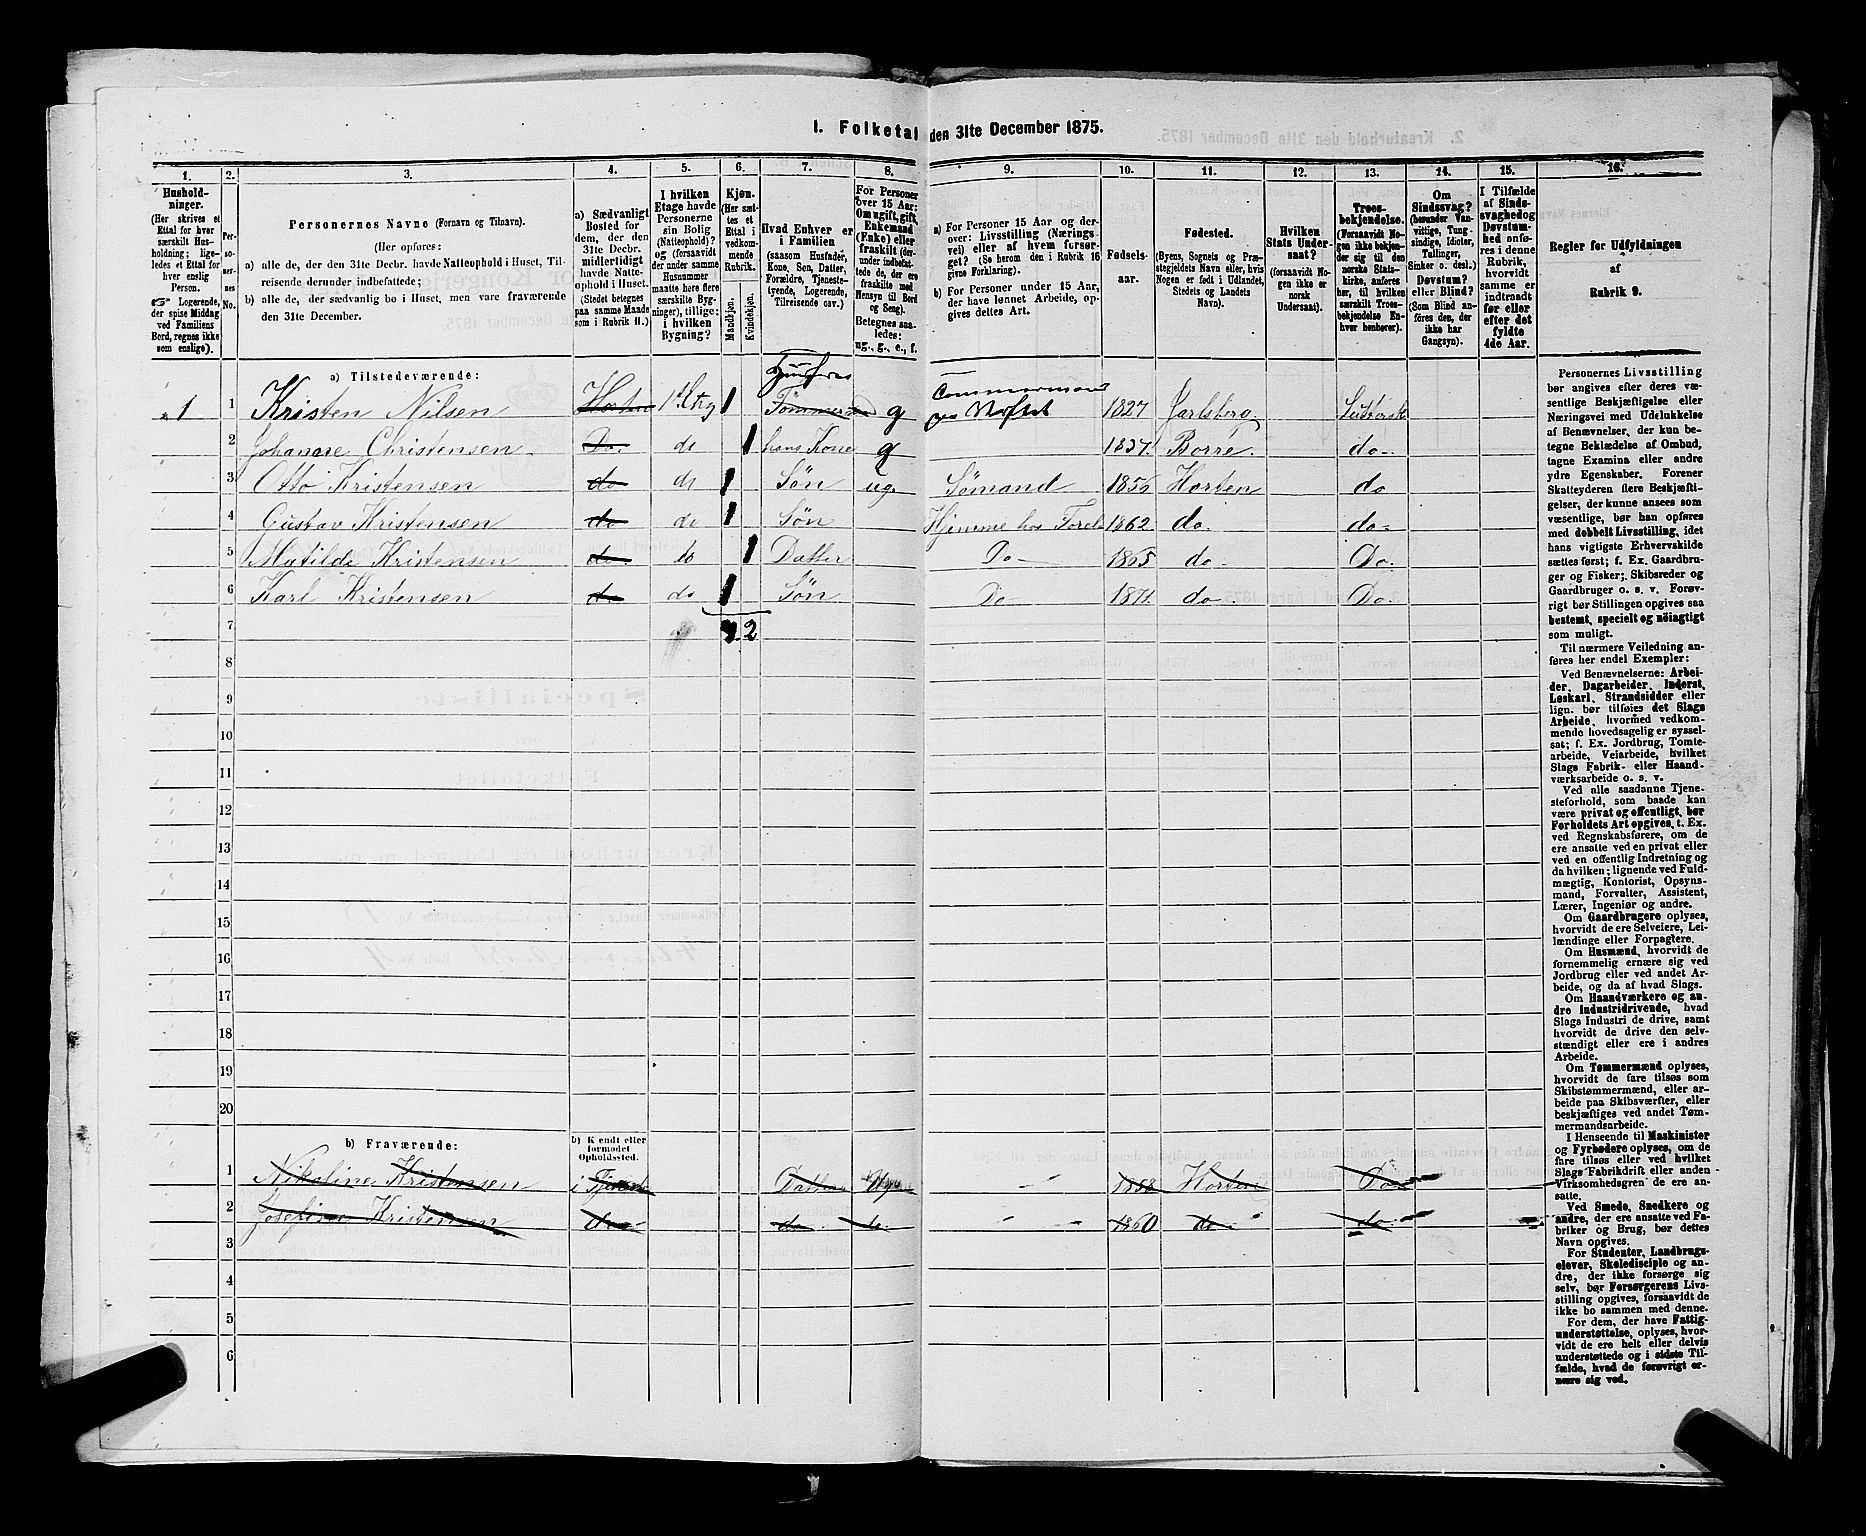 1. Folketal den 31te December 1875.
1. 2. 3. 4. 5. 6. 7. 8. 9. 10. 11. 12. 13. 14. 15. 16.
Hushold-
ninger.
(Her skrives et
Ettal for hver
særskilt Hus-
holdning; lige-
ledes et Ettal for
hver enslig
Person.
☞ Logerende,
der spise Middag
ved Familiens
Bord, regnes ikke
som enslige).
Per-
so-
ner-
nes
No.
Personernes Navne (Fornavn og Tilnavn).
(Her opføres:
a) alle de, der den 31te Decbr. havde Natteophold i Huset, Til-
reisende derunder indbefattede;
b) alle de, der sædvanlig bo i Huset, men vare fraværende
den 31te December.
a) Sædvanligt
Bosted for
dem, der den
31te Decbr.
midlertidigt
havde Natte-
ophold i Huset.
(Stedet betegnes
paa samme Maade
som i Rubrik 11.)
I hvilken
Etage havde
Personerne
sin Bolig
(Natteophold)?
(forsaavidt
der under samme
Husnummer
maatte høre flere
særskilte Byg-
ninger), tillige:
i hvilken
Bygning?
Kjøn.
(Her sæt-
tes et
Ettal i
vedkom-
mende
Rubrik.
Mandkjøn.
Kvindekjøn.
Hvad Enhver er
i Familien
(saasom Husfader,
Kone, Søn, Datter,
Forældre, Tjeneste-
tyende, Logerende,
Tilreisende osv.)
For Personer
over 15 Aar:
Om ugift, gift,
Enkemand
(Enke) eller
fraskilt (der-
under indbefat-
tede de, der ere
fraskilte med
Hensyn til Bord
og Seng).
Betegnes saa-
ledes:
ug., g., e., f.
a) For Personer 15 Aar og der-
over: Livsstilling (Nærings-
vei) eller af hvem forsør-
get? (Se herom den i Rubrik 16
givne Forklaring).
b) For Personer under 15 Aar,
der have lønnet Arbeide, op-
gives dettes Art.
Fødsels-
aar.
Fødested.
(Byens, Sognets og Præ-
stegjeldets Navn eller, hvis
Nogen er født i Udlandet,
Stedets og Landets
Navn).
Hvilken
Stats Under-
saat?
(forsaavidt No-
gen ikke er
norsk
Undersaat).
Troes-
bekjendelse.
(Forsaavidt No-
gen ikke bekjen-
der sig til den
norske Stats-
kirke, anføres
her, til hvilken
særskilt Troes-
bekjendelse En-
hver henhører).
Om
Sindssvag?
(herunder Van-
vittige, Tung-
sindige, Idioter,
Tullinger,
Sinker o. desl.)
Døvstum?
eller Blind?
(Som Blind an-
føres den, der
ikke har
Gangsyn).
I Tilfælde
af Sinds-
svaghed og
Døvstum-
hed anfø-
res i denne
Rubrik,
hvorvidt
samme er
indtraadt
før eller
efter det
fyldte
4de Aar.
Regler for Udfyldningen
af
Rubrik 9.
a) Tilstedeværende:
1 1 Kristen Nilsen Horten g 1827 Jarlsberg
2 Johanne Christensen Do. do 1 hans Kone g 1837. Borre. do
3 Otto Kristensen do do 1 Søn ug. Sømand Horten do
4 Gustav Kristensen do do 1 Søn Hjemme hos Forel 1862. do. do
5 Matilde Kristensen do do 1 Datter Do 1865 do Do.
6 Karl Kristensen do do 1 Søn Do 1871. do Do.
7 2
8
9
10
11
12
13
14
15
16
17
18
19
20
b) Fraværende:
b) Kendt eller
formodet
Opholdssted.
1 Nikoline Kristensen i Datter Horten Do
2 Josefine Kristensen do do do 1860 do do
3
4
5
6
Personernes Livsstilling
bør angives efter deres væ-
sentlige Beskjæftigelse eller
Næringsvei med Udelukkelse
af Benævnelser, der kun be-
tegne Beklædelse af Ombud,
tagne Examina eller andre
ydre Egenskaber. Forener
Skatteyderen flere Beskjæfti-
gelser, der kunne ansees som
væsentlige, bør han opføres
med dobbelt Livsstilling, idet
hans vigtigste Erhvervskilde
sættes først; f. Ex. Gaardbru-
ger og Fisker; Skibsreder og
Gaardbruger o. s. v. Forøv-
rigt bør Stillingen opgives saa
bestemt, specielt og nøiagtigt
som muligt.
Til nærmere Veiledning an-
føres her endel Exempler:
Ved Benævnelserne: Arbei-
der, Dagarbeider, Inderst,
Løskarl, Strandsidder eller
lign. bør tilføies det Slags
Arbeide, hvormed vedkom-
mende hovedsagelig er syssel-
sat; f. Ex. Jordbrug, Tomte-
arbeide, Veiarbeide, hvilket
Slags Fabrik- eller Haand-
værksarbeide o. s. v.
Ved alle saadanne Tjene-
steforhold, som baade kan
være privat og offentligt, bør
Forholdets Art opgives, t. Ex.
ved Regnskabsførere, om de
ere ansatte ved en privat eller
ved en offentlig Indretning og
da hvilken; lignende ved Fuld-
mægtig, Kontorist, Opsyns-
mand, Forvalter, Assistent,
Lærer, Ingeniør og andre.
Om Gaardbrugere oplyses,
hvorvidt de ere Selveiere, Lei-
lændinge eller Forpagtere.
Om Husmænd, hvorvidt de
fornemmelig ernære sig ved
Jordbrug eller ved andet Ar-
beide, og da af hvad Slags.
Om Haandværkere og an-
dre Industridrivende, hvad
Slags Industri de drive, samt
hvorvidt de drive den selv-
stændigt eller ere i andres
Arbeide.
Om Tømmermænd oplyses,
hvorvidt de fare tilsøs som
Skibstømmermænd, eller ar-
beide paa Skibsværfter, eller
beskjæftiges ved andet Tøm-
mermandsarbeide.
I Henseende til Maskinister
og Fyrbødere oplyses, om de
fare tilsøs eller ved hvilket
Slags Fabrikdrift eller anden
Virksomhedsgren de ere an-
satte.
Ved Smede, Snedkere og
andre, der ere ansatte ved Fa-
briker og Brug, bør dettes
Navn opgives.
For Studenter, Landbrugs-
elever, Skoledisciple og an-
dre, der ikke forsørge sig
selv, bør Forsørgerens Livs-
stilling opgives, forsaavidt de
ikke bo sammen med denne.
For dem, der have Fattig-
understøttelse, oplyses, hvor-
vidt de ere helt eller delvis
understøttede og i sidste Til-
fælde, hvad de forøvrigt er-
nære sig ved.